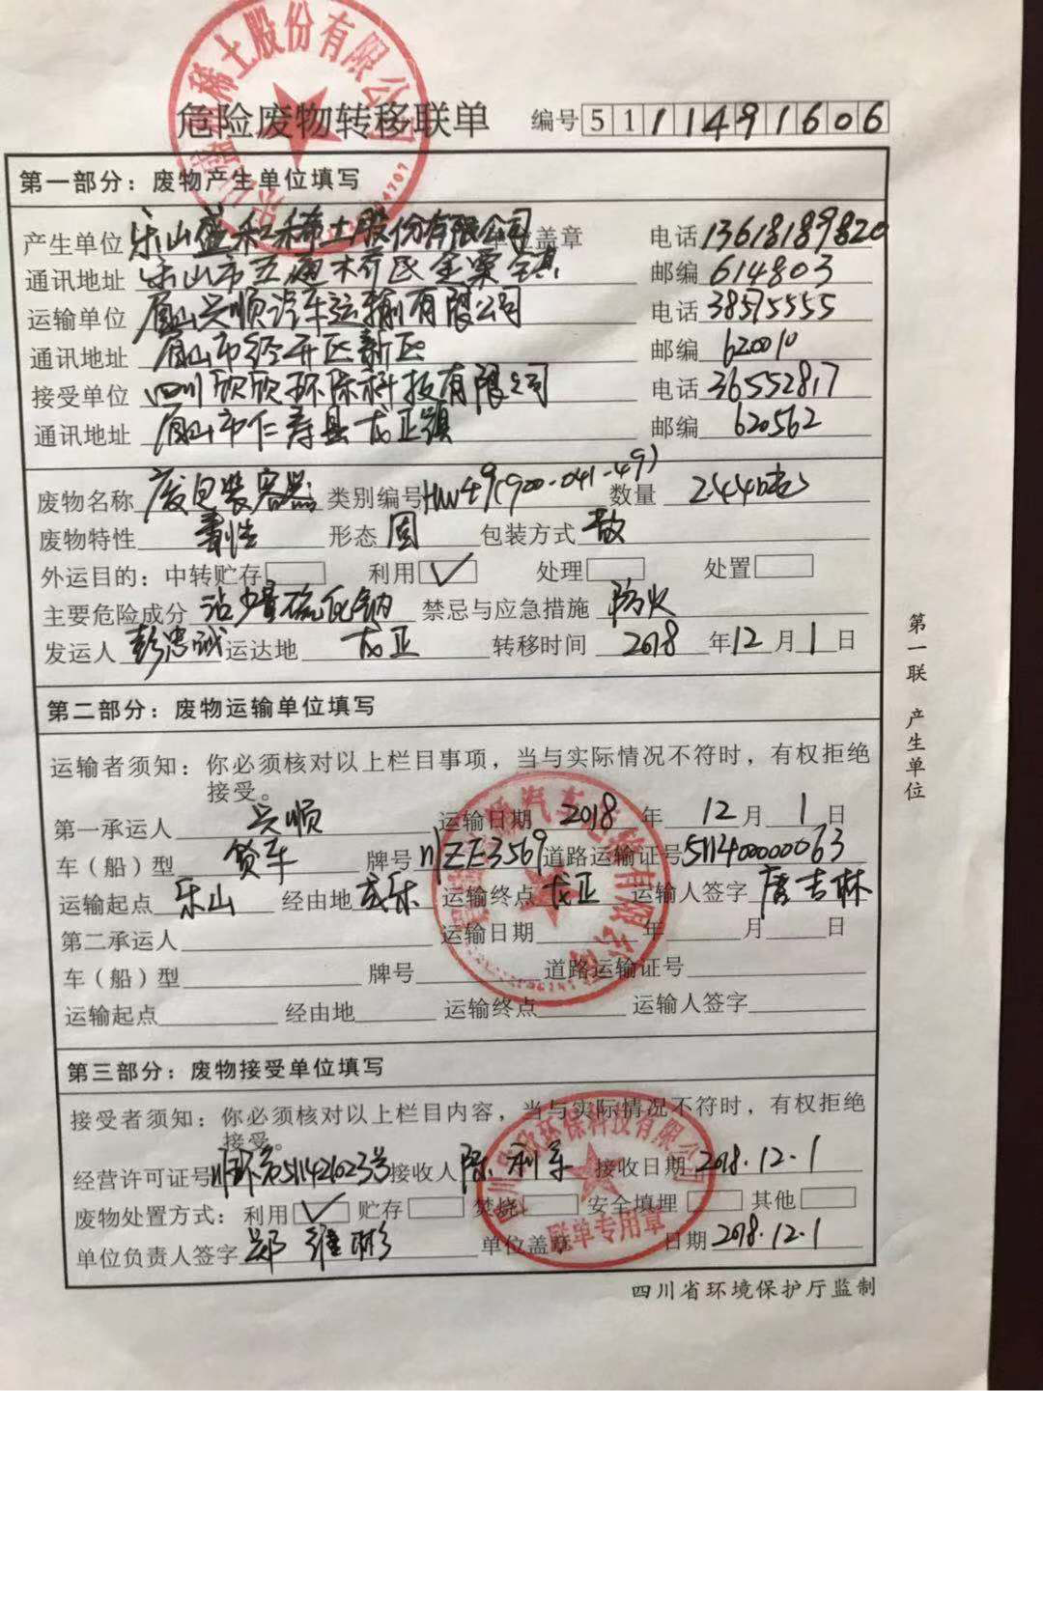 稀土股份有限公
危险废物转移联单 编号 511149 1606
第一部分：废物产生单位填写
产生单位 乐山盛和稀土股份有限公司 盖章 电话 13618189820
通讯地址 乐山市五通桥区金粟镇 邮编 614803
运输单位 眉山兴顺汽车运输有限公司 电话 38595555
通讯地址 眉山市经开区新区 邮编 620010
接受单位 四川欣欣环保科技有限公司 电话 36552817
通讯地址 眉山市仁寿县龙正镇 邮编 620562
废物名称 废包装容器 类别编号 HW49(900-041-49) 数量 2.44吨
废物特性 毒性 形态 固 包装方式 散
外运目的：中转贮存 利用 ✓ 处理 处置
主要危险成分 沾少量硫化钠 禁忌与应急措施 防火
发运人 彭忠诚 运达地 龙正 转移时间 2018 年 12 月 1 日
第二部分：废物运输单位填写
运输者须知：你必须核对以上栏目事项，当与实际情况不符时，有权拒绝
接受。
第一承运人 兴顺 运输日期 2018 年 12 月 1 日
车（船）型 货车 牌号 川ZE3569 道路运输证号 511400000063
运输起点 乐山 经由地 成乐 运输终点 龙正 运输人签字 唐吉林
第二承运人 运输日期 年 月 日
车（船）型 牌号 道路运输证号
运输起点 经由地 运输终点 运输人签字
第三部分：废物接受单位填写
接受者须知：你必须核对以上栏目内容，当与实际情况不符时，有权拒绝
接受。
经营许可证号 川环危511421023号 接收人 陈利军 接收日期 2018.12.1
废物处置方式：利用 ✓ 贮存 焚烧 安全填埋 其他
单位负责人签字 郑维彬 单位盖章 日期 2018.12.1
联单专用章
四川省环境保护厅监制
第一联 产生单位